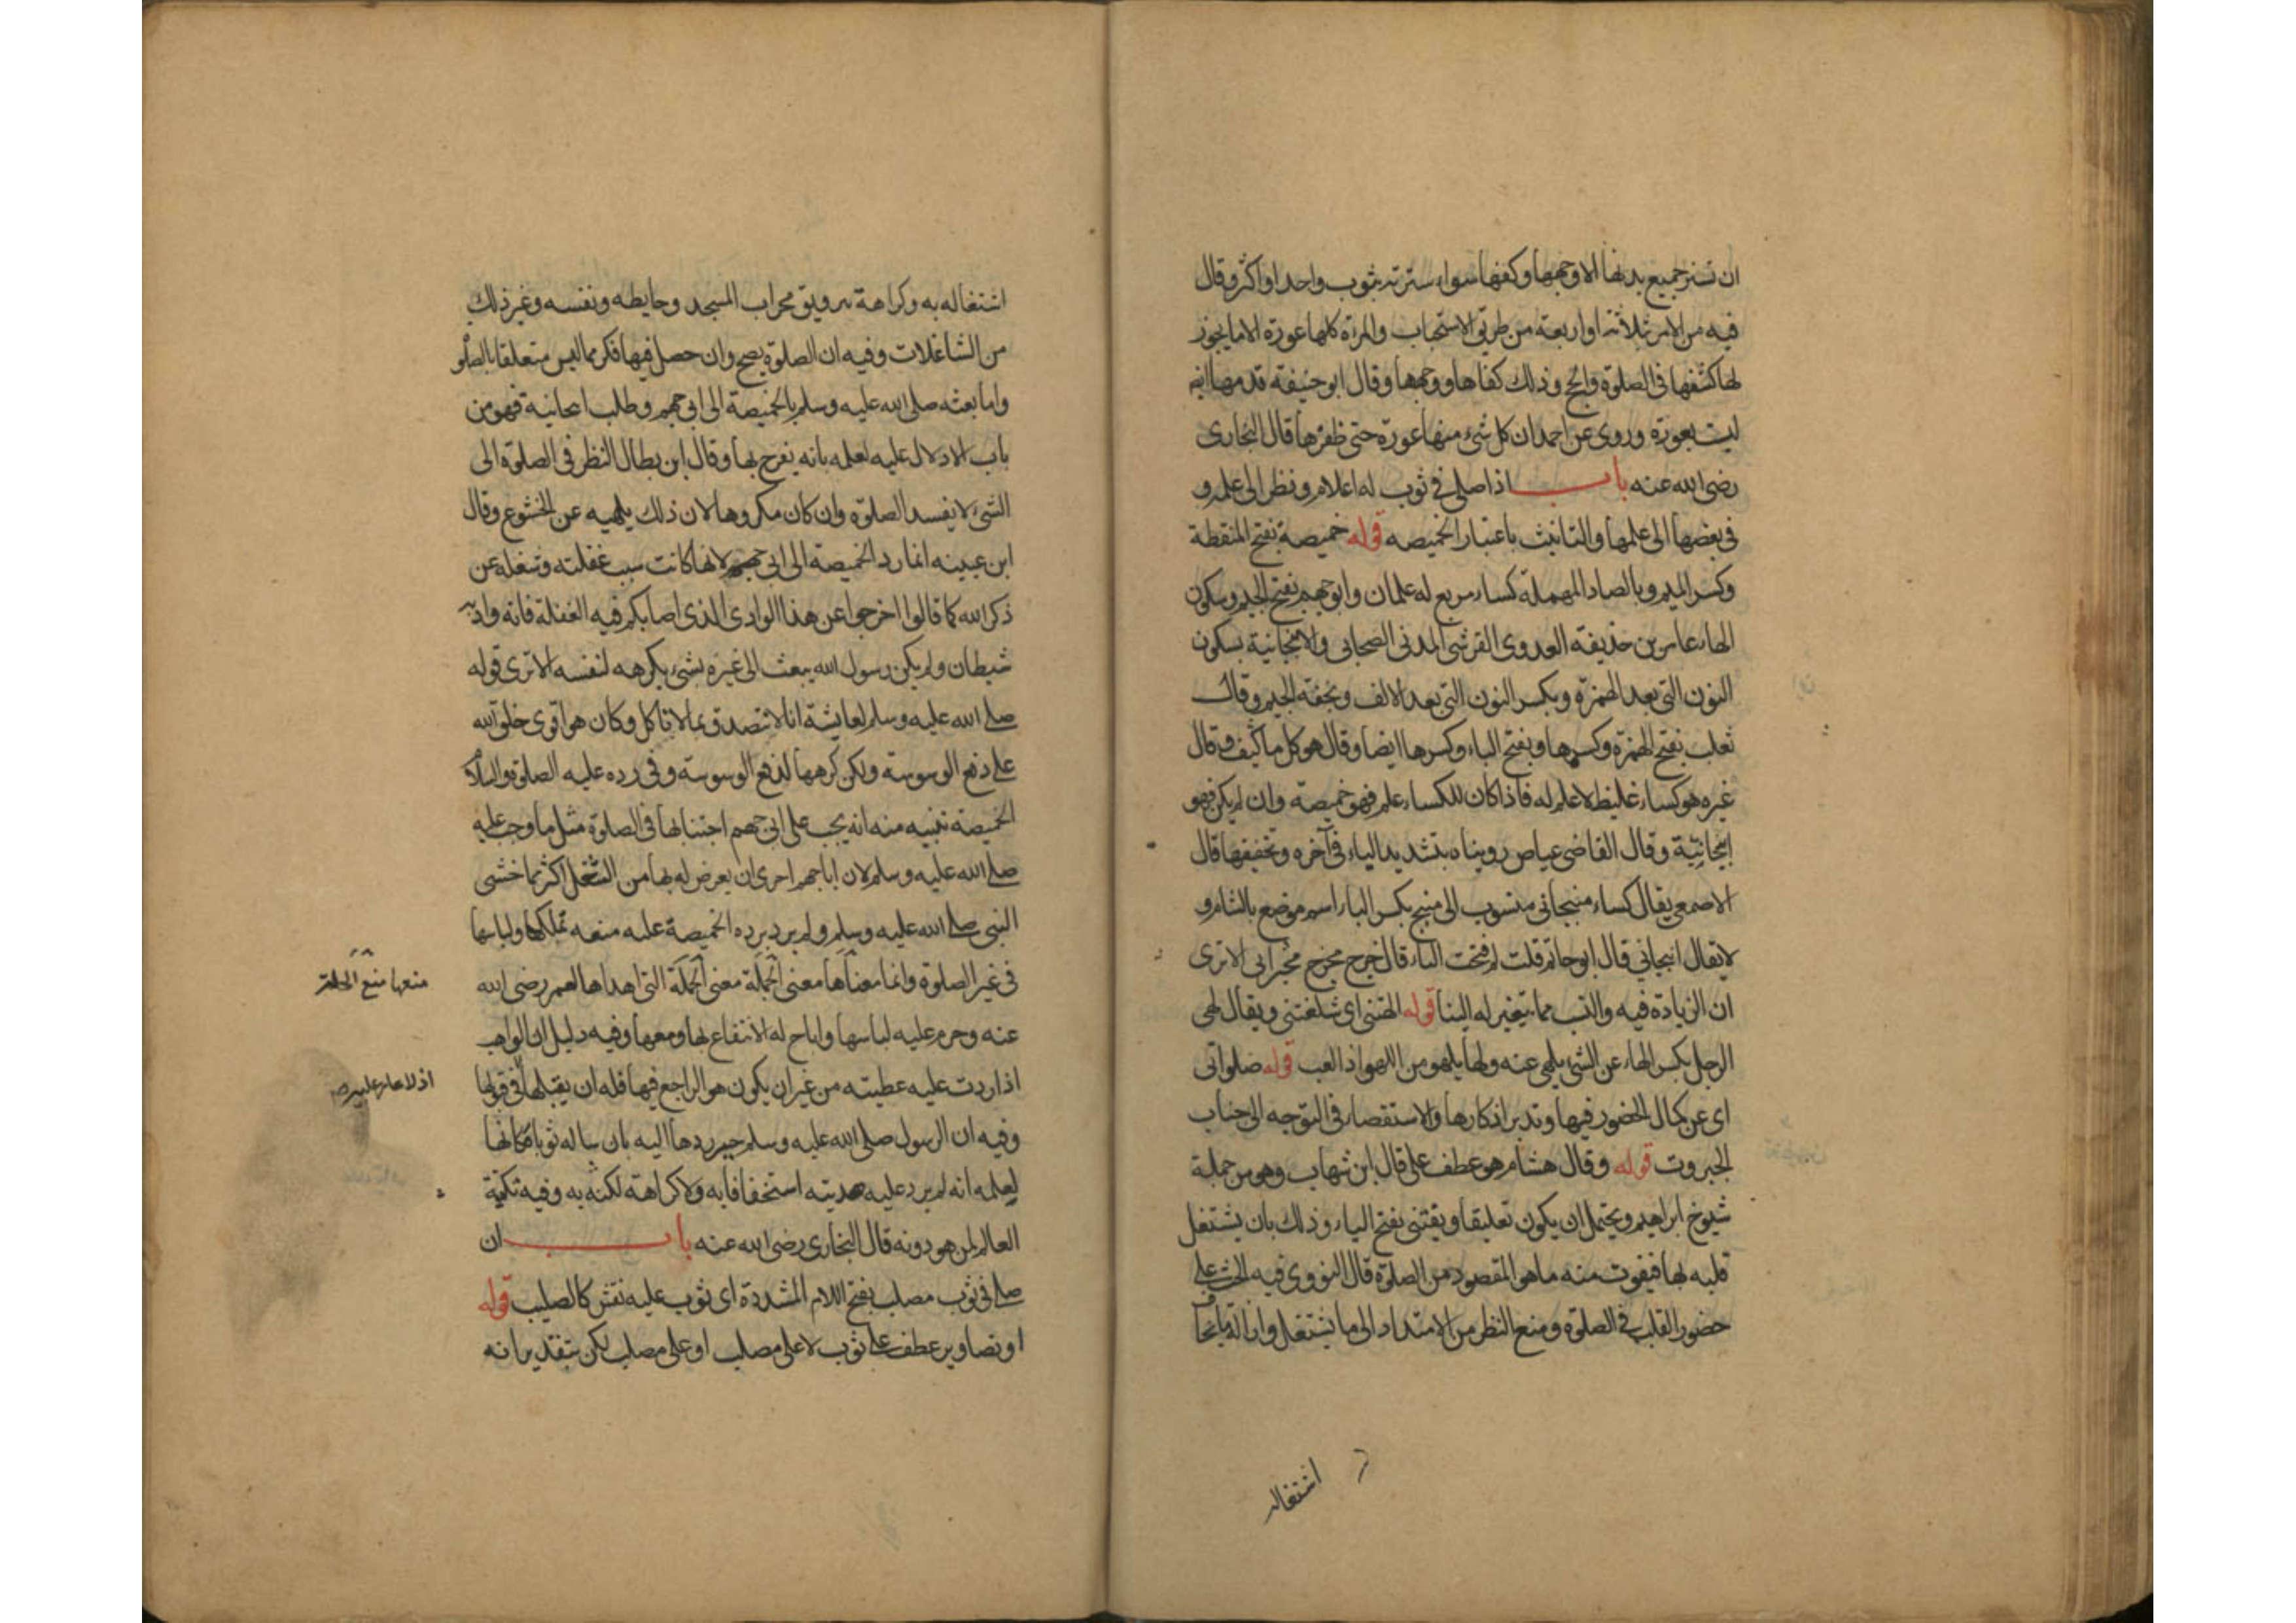 ان تستر جميع بدنها الا وجهها وكفيها سواء سترته بثوب واحد او اكثر وقال
فيه من الامر ثلاثة او اربعة من طريق الاستحباب والمرءة كلها عورة الا ما يجوز
لها كشفها في الصلوة والحج وذلك كفاها ووجهها وقال ابو حنيفة قدمها ايضا
ليست بعورة وروي عن احمد ان كل شيء منها عورة حتى ظفرها قال البخاري
رضي الله عنه باب اذا صلى في ثوب له اعلام ونظر الى علمه و
في بعضها الى علمها والتانيث باعتبار الخميصه قوله خميصة بفتح المنقطة
وكسر الميم وبالصاد المهملة كساء مربع له علمان وابو جهم بفتح الجيم وسكون
الهاء عامر بن حذيفة العدوي القرشي المدني الصحابي والانبجانية بسكون
النون التي بعد الهمزة وبكسر النون التي بعد الالف وبخفة الجيم وقال
ثعلب بفتح الهمزة وكسرها وبفتح الباء وكسرها ايضا وقال هو كل ما كثف وقال
غيره هو كساء غليظ لا علم له فاذا كان للكساء علم فهو خميصة وان لم يكن فهو
انبجانية وقال القاضي عياض رويناه بتشديد الياء في آخره وتخفيفها قال
الاصمعي يقال كساء منبجاني منسوب الى منبج بكسر الباء اسم موضع بالشام و
لا يقال انبجاني قال ابو حاتم قلت لم فتحت الباء قال خرج مخرج مخبراني الا ترى
ان الزيادة فيه والنسب مما يتغير له البنا قوله الهتني اي شغلتني ويقال لهي
الرجل بكسر الهاء عن الشيء يلهى عنه ولها يلهو من اللهو اذا لعب قوله صلواتي
اي عن كمال الحضور فيها وتدبر اذكارها والاستقصاء في التوجه الى جناب
الجبروت قوله وقال هشام هو عطف على قال ابن شهاب وهو من جملة
شيوخ ابراهيم ويحتمل ان يكون تعليقا ويفتنني بفتح الياء وذلك بان يشتغل
قلبه لها فيفوت منه ما هو المقصود من الصلوة قال النووي فيه الحث على
حضور القلب في الصلوة ومنع النظر من الامتداد الى ما يشتغل وازالة ما يخاف
اشتغاله
اشتغاله به وكراهة تزويق محراب المسجد وحايطه ونقشه وغير ذلك
من الشاغلات وفيه ان الصلوة يصح وان حصل فيها فكر مما ليس متعلقا بالصلو
واما بعثه صلى الله عليه وسلم بالخميصة الى ابي جهم وطلب انبجانية فهو من
باب الادلال عليه لعلمه بانه يفرح بها وقال ابن بطال النظر في الصلوة الى
الشيء لا يفسد الصلوة وان كان مكروها لان ذلك يلهيه عن الخشوع وقال
ابن عيينه انما رد الخميصة الى ابي جهم لانها كانت سبب غفلته وشغله عن
ذكر الله كما قالوا اخرجوا عن هذا الوادي الذي اصابكم فيه الغفلة فانه واد به
شيطان ولم يكن رسول الله يبعث الى غيره بشيء يكرهه لنفسه الا ترى قوله
صلى الله عليه وسلم لعايشة انا لا نتصدق بما لا ناكل وكان هو اقوى خلق الله
على دفع الوسوسة ولكن كرهها لدفع الوسوسة وفي رده عليه الصلوة والسلام
الخميصة تنبيه منه انه يجب على ابي جهم اجتنابها في الصلوة مثل ما وجب عليه
صلى الله عليه وسلم لان ابا جهم احرى ان يعرض له بها من الشغل اكثر مما خشي
النبي صلى الله عليه وسلم ولم يرد برده الخميصة عليه منعه تملكها ولباسها
في غير الصلوة وانما معناها معنى الحلة معنى الحلة التي اهداها لعمر رضي الله
عنه وحرم عليه لباسها واباح له الانتفاع بها ومعها وفيه دليل ان الواهب
اذا ردت عليه عطيته من غير ان يكون هو الراجع فيها فله ان يقبلها في قبولها
وفيه ان الرسول صلى الله عليه وسلم جبر ردها اليه بان ساله ثوبا مكانها
ليعلمه انه لم يرد عليه هديته استخفافا به ولا كراهة لكنه به وفيه تكنية
العالم لمن هو دونه قال البخاري رضي الله عنه باب ان
صلى في ثوب مصلب بفتح اللام المشددة اي ثوب عليه نقش كالصليب قوله
او تصاوير عطف على ثوب لا على مصلب او على مصلب لكن بتقدير انه
اذ لا عار عليه